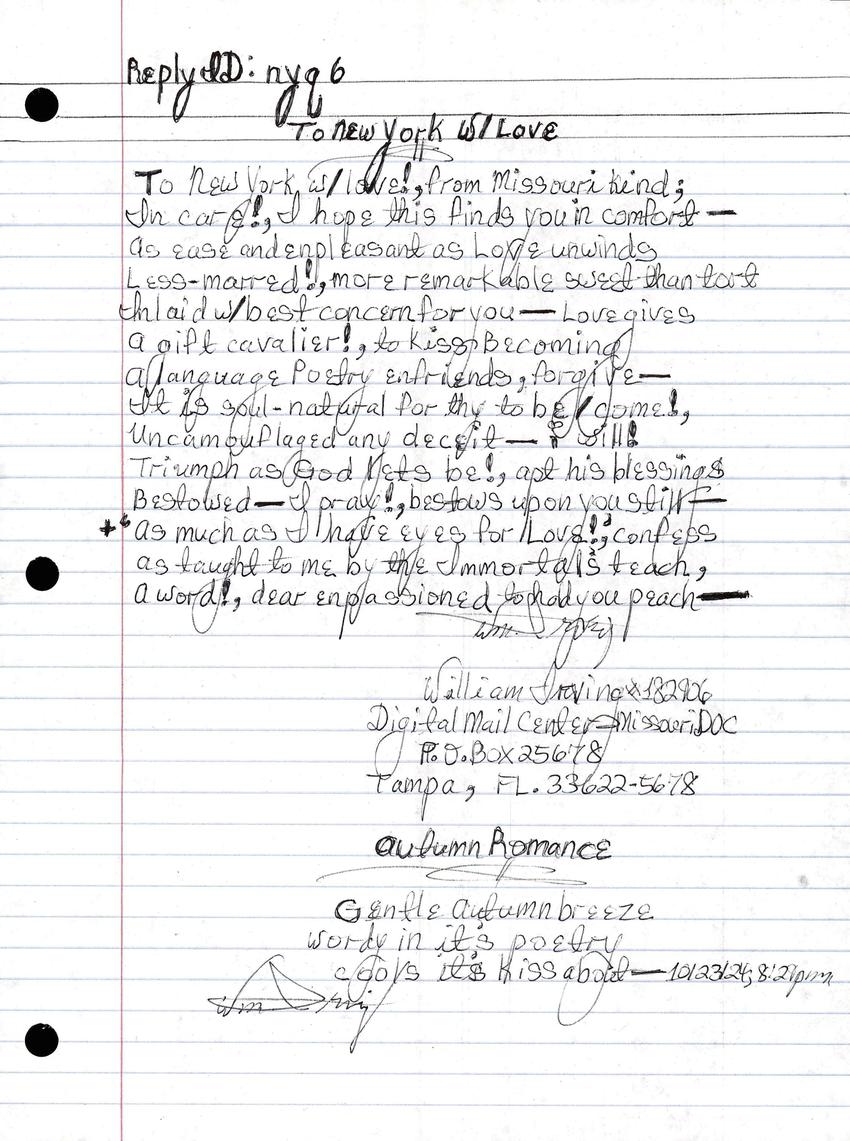 Reply ID: nyq6
To New York w/ Love
To New York w/ love!, from Missouri kind;
In care!, I hope this finds you in comfort —
as ease and enpleasant as Love unwinds
Less-marred!, more remarkable sweet than tart
Inlaid w/ best concern for you — Love gives
a gift cavalier!, to kiss, Becoming
a language Poetry enfriends, forgive —
It is soul-natural for thy to be/come!,
Uncamouflaged any deceit — I will!
Triumph as God lets be!, apt his blessings
Bestowed — I pray!, bestows upon you still —
as much as I have eyes for Love!, confess
as taught to me by the Immortals teach,
a word!, dear enpassioned to hold you peach —
Wm Irving
William Irving x182906
Digital Mail Center-Missouri DOC
P.O. Box 25678
Tampa, FL. 33622-5678
Autumn Romance
Gentle autumn breeze
wordy in it's poetry
cools it's kiss about — 10/23/24, 8:29pm
Wm Irving